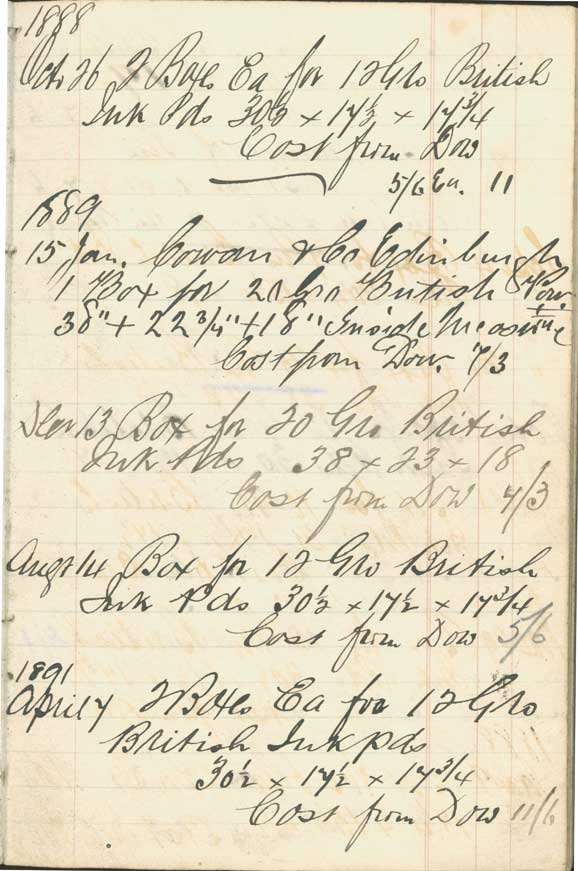 1888
Oct 26 2 Boxes Ea for 12 Gro British
Ink Pds 30½ × 17½ × 17¾
Cost from Dow
5/6 Ea. 11
1889
15 Jan. Cowan & Co Edinburgh
1 Box for 20 Gro British
38" + 22¾" + 18" Inside Measure
Cost from Dow. 7/3
13 Box for 20 Gro British
Ink Pds 38 × 23 × 18
Cost from Dow 7/3
Augt 14 Box for 12 Gro British
Ink Pds 30½ × 17½ × 17¾
Cost from Dow 5/6
1891
April 7 2 Boxes Ea for 12 Gro
British Ink pds
30½ × 17½ × 17¾
Cost from Dow 11/6